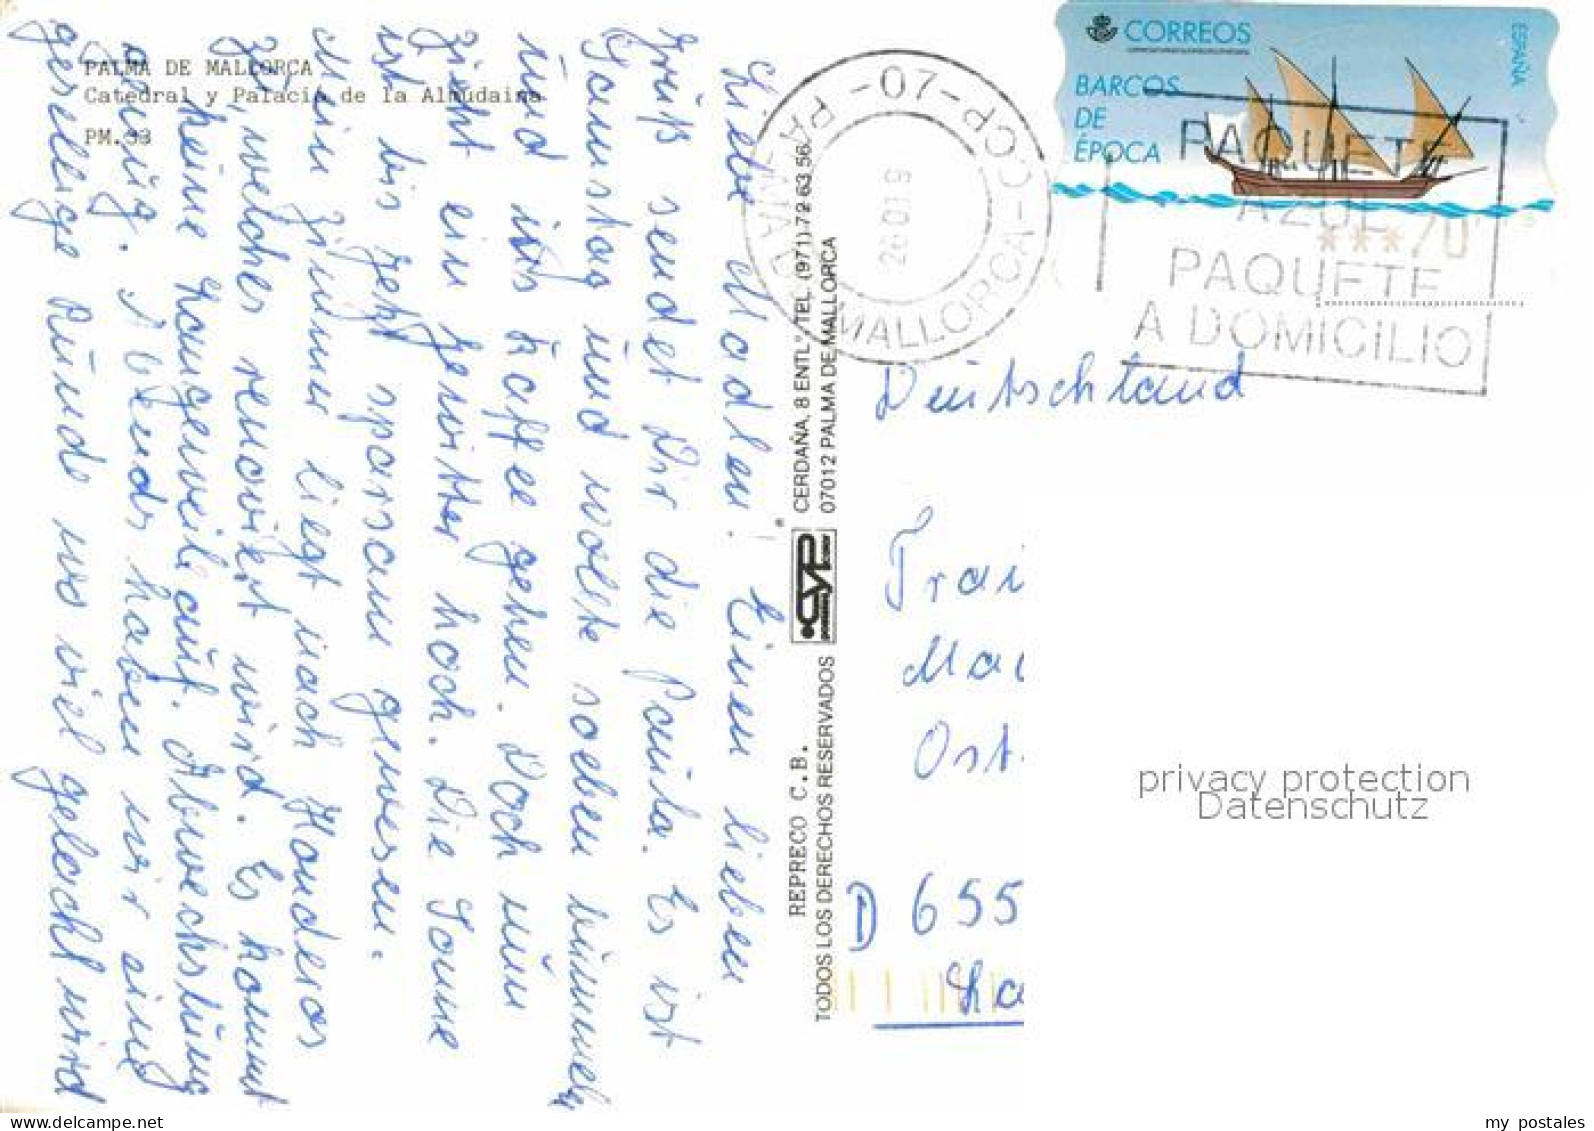 PALMA DE MALLORCA
Catedral y Palacio de la Almudaina
PM.93
Liebe Madlen! Einen lieben
Gruß sendet Dir die Paula. Es ist
Samstag und wollte soeben bummeln
und ins Kaffee gehen. Doch nun
zieht ein Gewitter hoch. Die Sonne
ist bis jetzt sparsam gewesen.
Mein Zimmer liegt nach
welches renoviert wird. Es kommt
keine Langeweile auf. Abwechslung
genug. Abends haben wir eine
gesellige Runde wo viel gelacht wird
REPRECO C.B.
TODOS LOS DERECHOS RESERVADOS
CYP
CERDAÑA, 8 ENTL° TEL. (971) 72 63 56
07012 PALMA DE MALLORCA
07-CCP
PALMA D MALLORCA
CORREOS
ESPAÑA
BARCOS
DE
ÉPOCA
***70
PAQUETE
AZUL
PAQUETE
A DOMICILIO
Deutschland
Ost.
D 655
privacy protection
Datenschutz
my postales